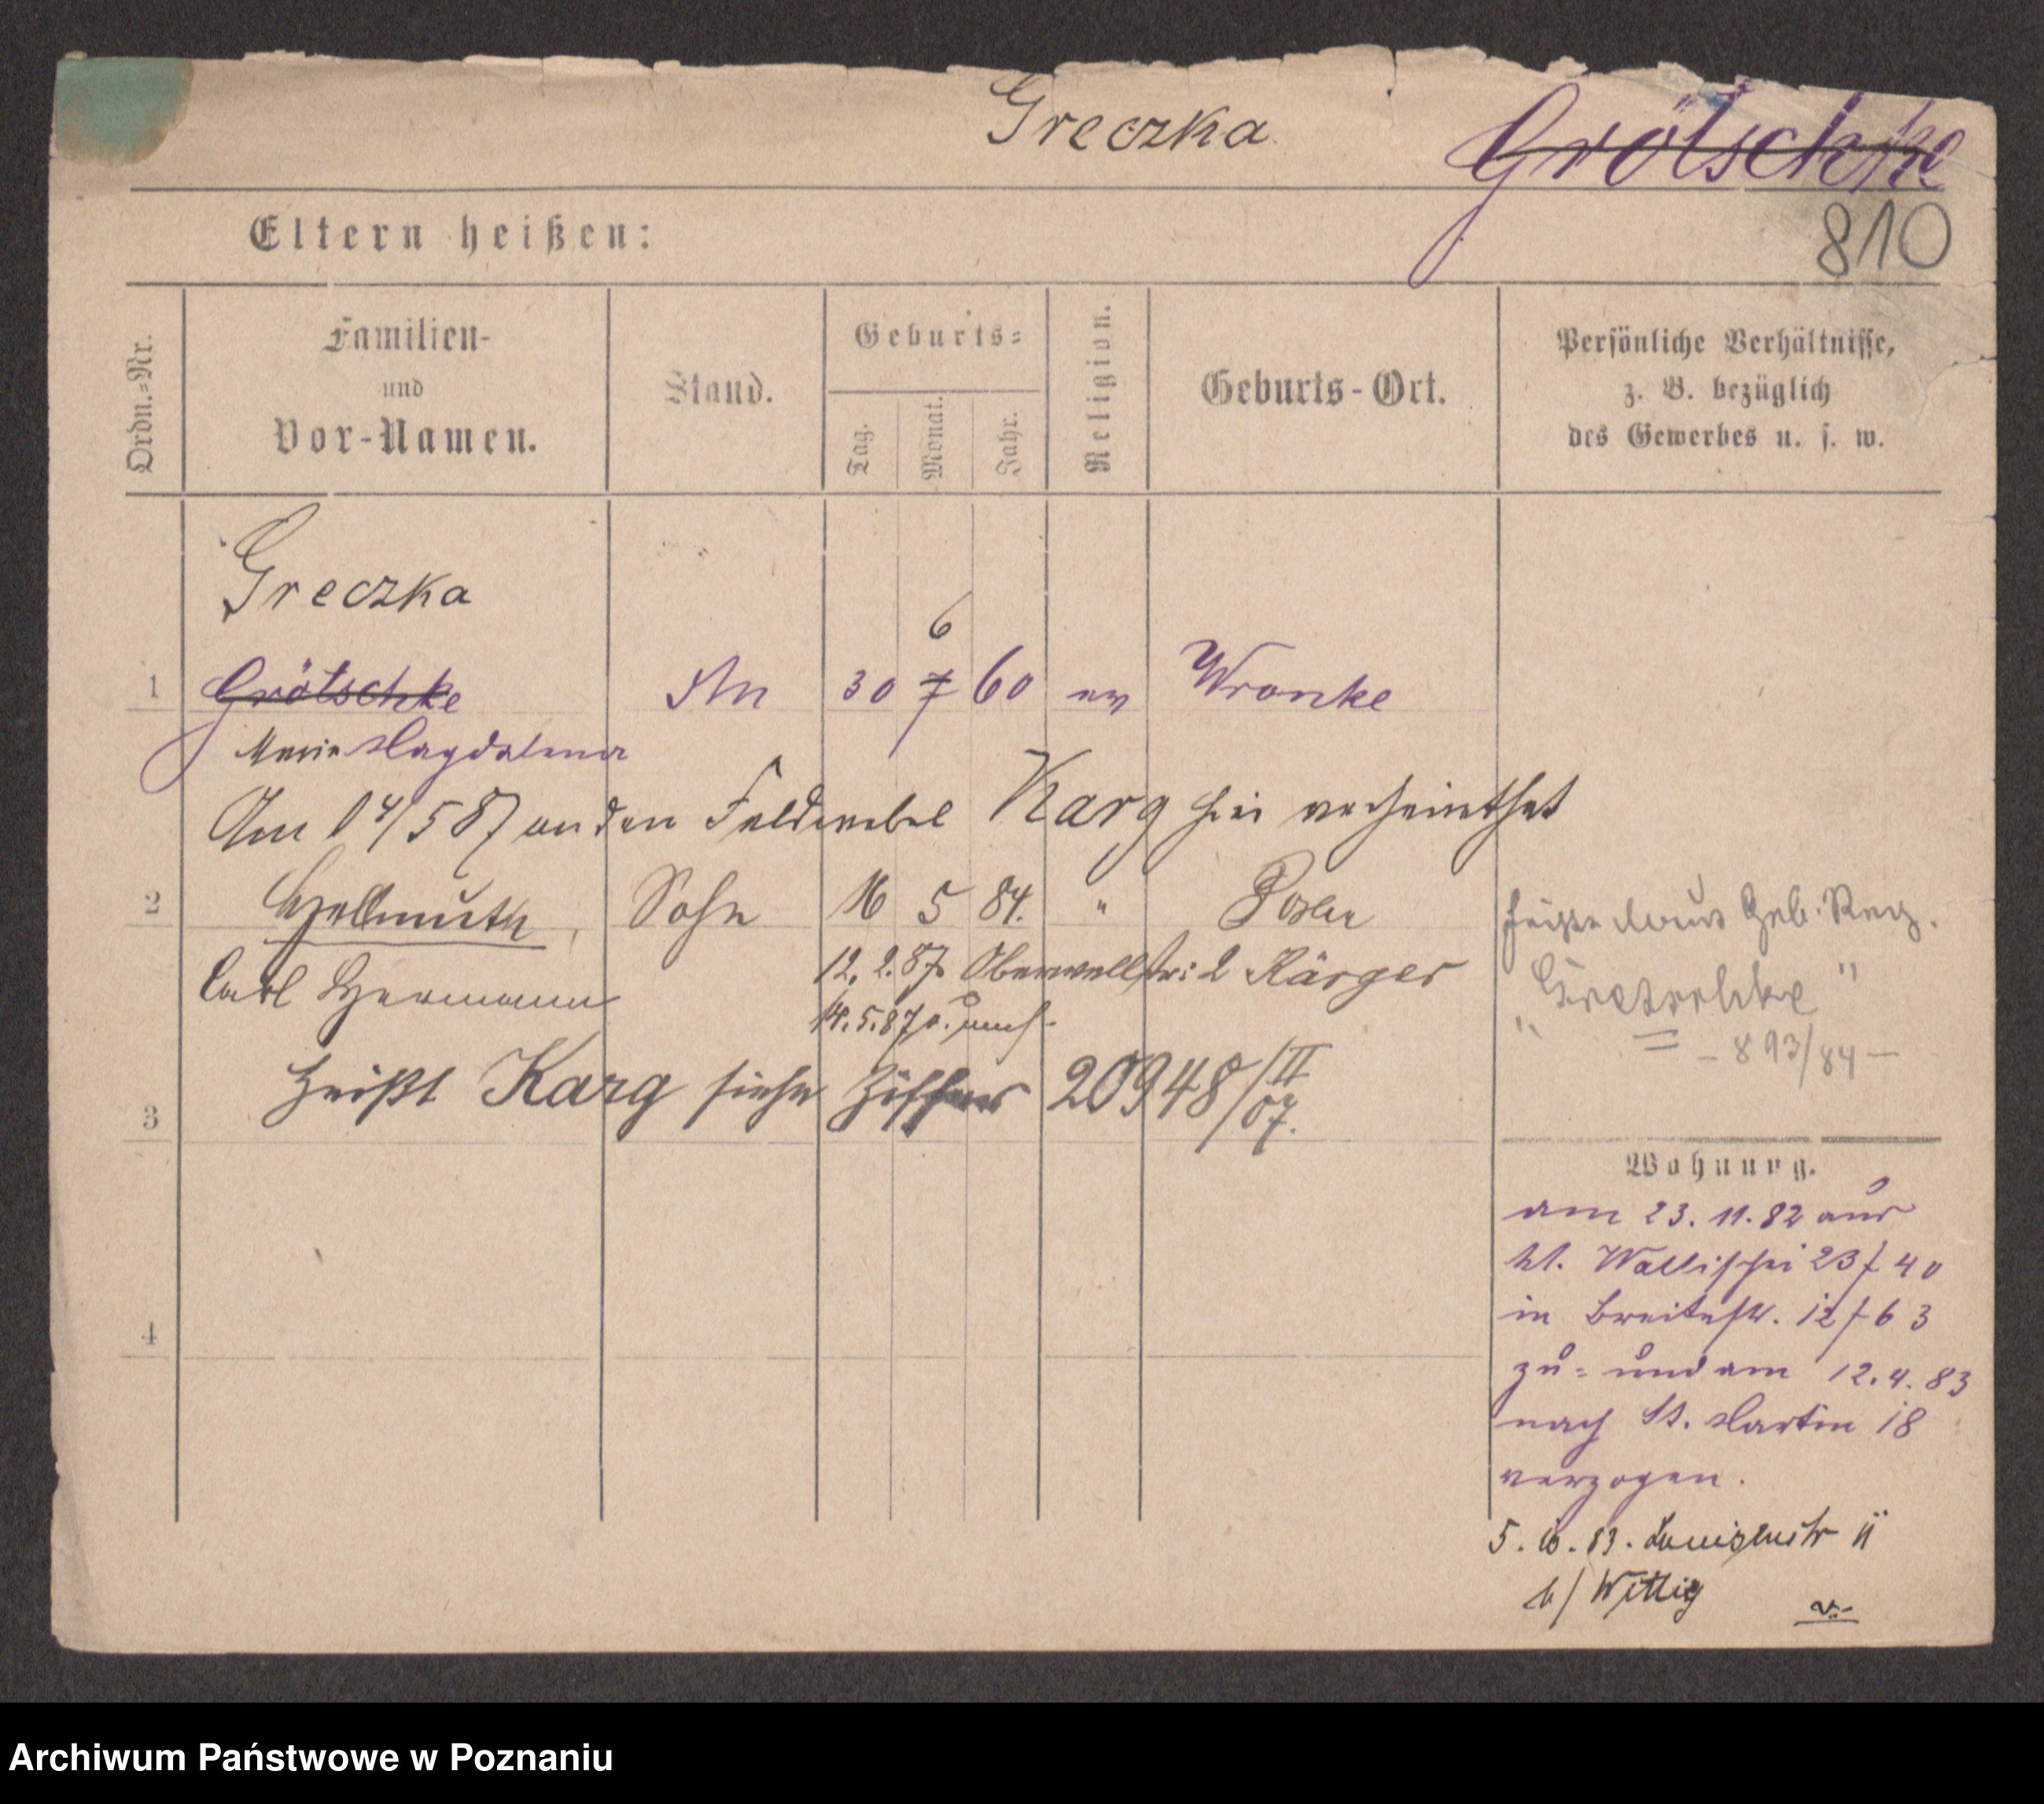 Greczka
Grötschke
810
Eltern heißen:
Ordn.=Nr.
Familien-
und
Vor-Namen.
Stand.
Geburts=
Tag.
Monat.
Jahr.
Religion.
Geburts-Ort.
Persönliche Verhältnisse,
z. B. bezüglich
des Gewerbes u. s. w.
Greczka
6
1 Grötschke 30 7 60 ev Wronke
Marie Magdalena
Am 14/5 87 an den Feldwebel Karg hier verheirathet
2 Hellmuth, Sohn 16 5 84. " Posen
heißt laut Geb. Reg.
Carl Hermann
12. 2. 87 Oberwallstr: 2 Kärger
14. 5. 87
"Gretschke"
– 893/84 –
3 heißt Karg siehe Ziffer 20948/II 07.
4
Wohnung.
am 23. 11. 82 aus
kl. Wallischei 23 / 40
in Breitestr. 12 / 63
zu- und am 12. 4. 83
nach St. Martin 18
verzogen.
5. 10. 83. Louisenstr 11
b/ Wittig
Archiwum Państwowe w Poznaniu